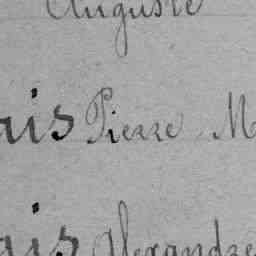 Auguste
ais Pierre M
ais Alexandre